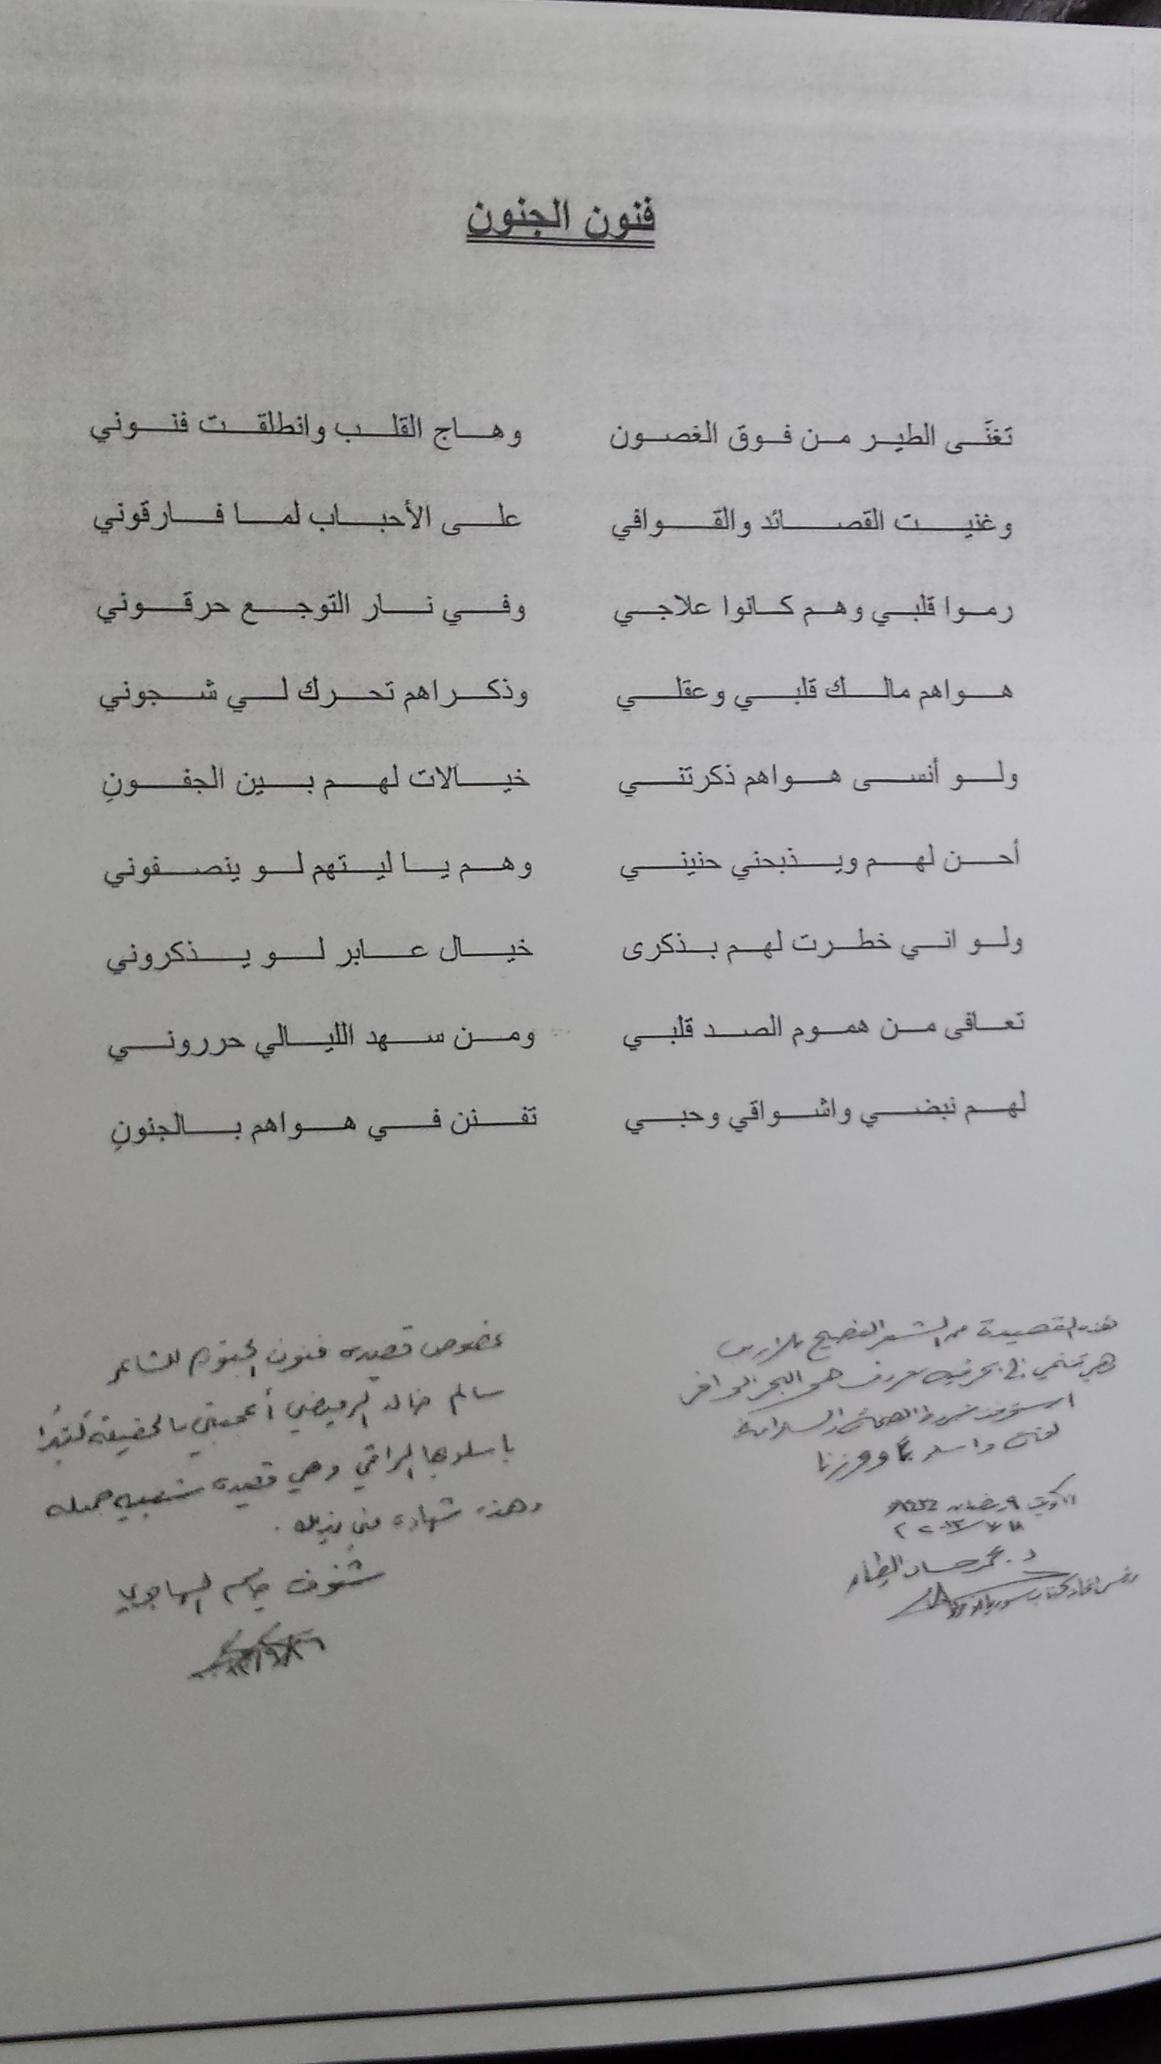 فنون الجنون
تغنَّى الطير من فوق الغصون وهاج القلب وانطلقت فنوني
وغنيت القصائد والقوافي على الأحباب لما فارقوني
رموا قلبي وهم كانوا علاجي وفي نار التوجع حرقوني
هواهم مالك قلبي وعقلي وذكراهم تحرك لي شجوني
ولو أنسى هواهم ذكرتني خيالات لهم بين الجفونِ
أحن لهم ويذبحني حنيني وهم يا ليتهم لو ينصفوني
ولو اني خطرت لهم بذكرى خيال عابر لو يذكروني
تعافى من هموم الصد قلبي ومن سهد الليالي حرروني
لهم نبضي واشواقي وحبي تفنن في هواهم بالجنونِ
هذه القصيدة من الشعر الفصيح
وهي تنتمي هو البحر الوافر
استوفت شروط الصحة والسلامة
لغة ووزنا
الكويت ٩ رمضان
د. محمد
بخصوص قصيدة فنون الجنون للشاعر
سالم خالد الرميضي أعجبتني بالحقيقة كثيرًا
بأسلوبها الراقي وهي قصيدة شعبيه جميله
وهذه شهادة مني بذلك.